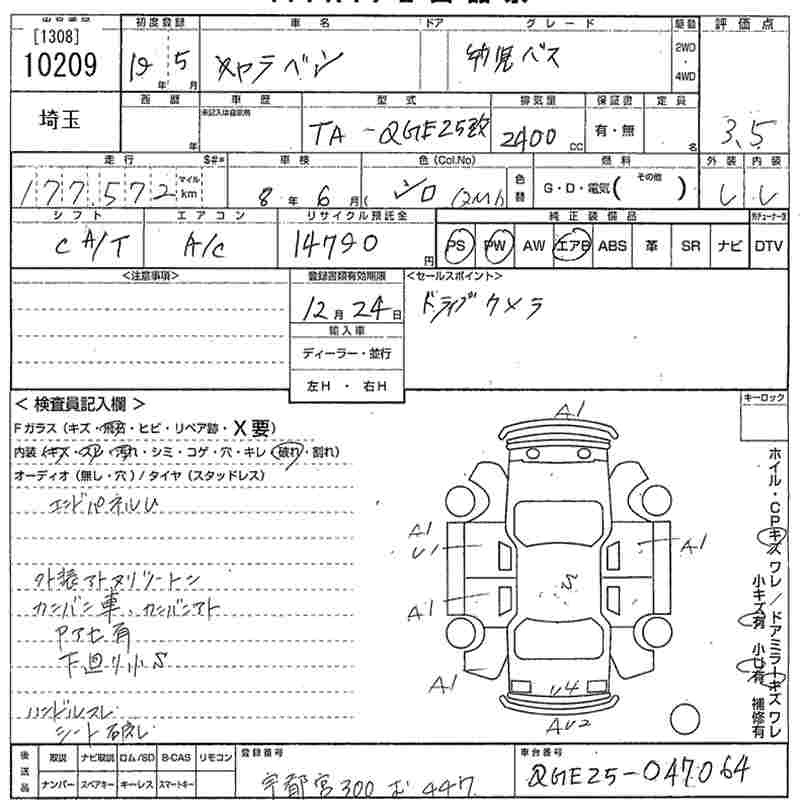 初度登録 車名 ドア グレード 駆動 評価点
[1308]
10209
19年 5月 キャラバン 幼児バス 2WD・4WD
西暦 車歴 型式 排気量 保証書 定員
未記入は自家用
埼玉 年 TA-QGE25改 2400cc 有・無 名 3.5
走行 S#* 車検 色(Col.No) 燃料 外装 内装
177,572 マイル km 8年 6月 シロ (2M1) 色替 G・D・電気(その他) L L
シフト エアコン リサイクル預託金 純正装備品
CA/T A/C 14790円 PS PW AW エアB ABS 革 SR ナビ DTV
<注意事項> 登録書類有効期限 <セールスポイント>
12月24日 ドライブカメラ
輸入車
ディーラー・並行
左H ・ 右H
<検査員記入欄> キーロック
Fガラス(キズ・飛石・ヒビ・リペア跡・X要)
内装(キズ・スレ・汚れ・シミ・コゲ・穴・キレ・破れ・割れ)
オーディオ(無し・穴)/タイヤ(スタッドレス)
エンドパネルU
外装アトヌリツートン
カンバン車、カンバンアト
Pアセ有
下廻り小S
ハンドルスレ
シート破れ
A1
A1
U1
A1
A1
A1
S
U4
AU2
ホイル・CPキズ ワレ/ドアミラーキズ ワレ
小キズ有 小U有 補修有
後送品 取説 ナビ取説 ロム/SD B-CAS リモコン 登録番号 車台番号
ナンバー スペアキー キーレス スマートキー 宇都宮300 447 QGE25-047064